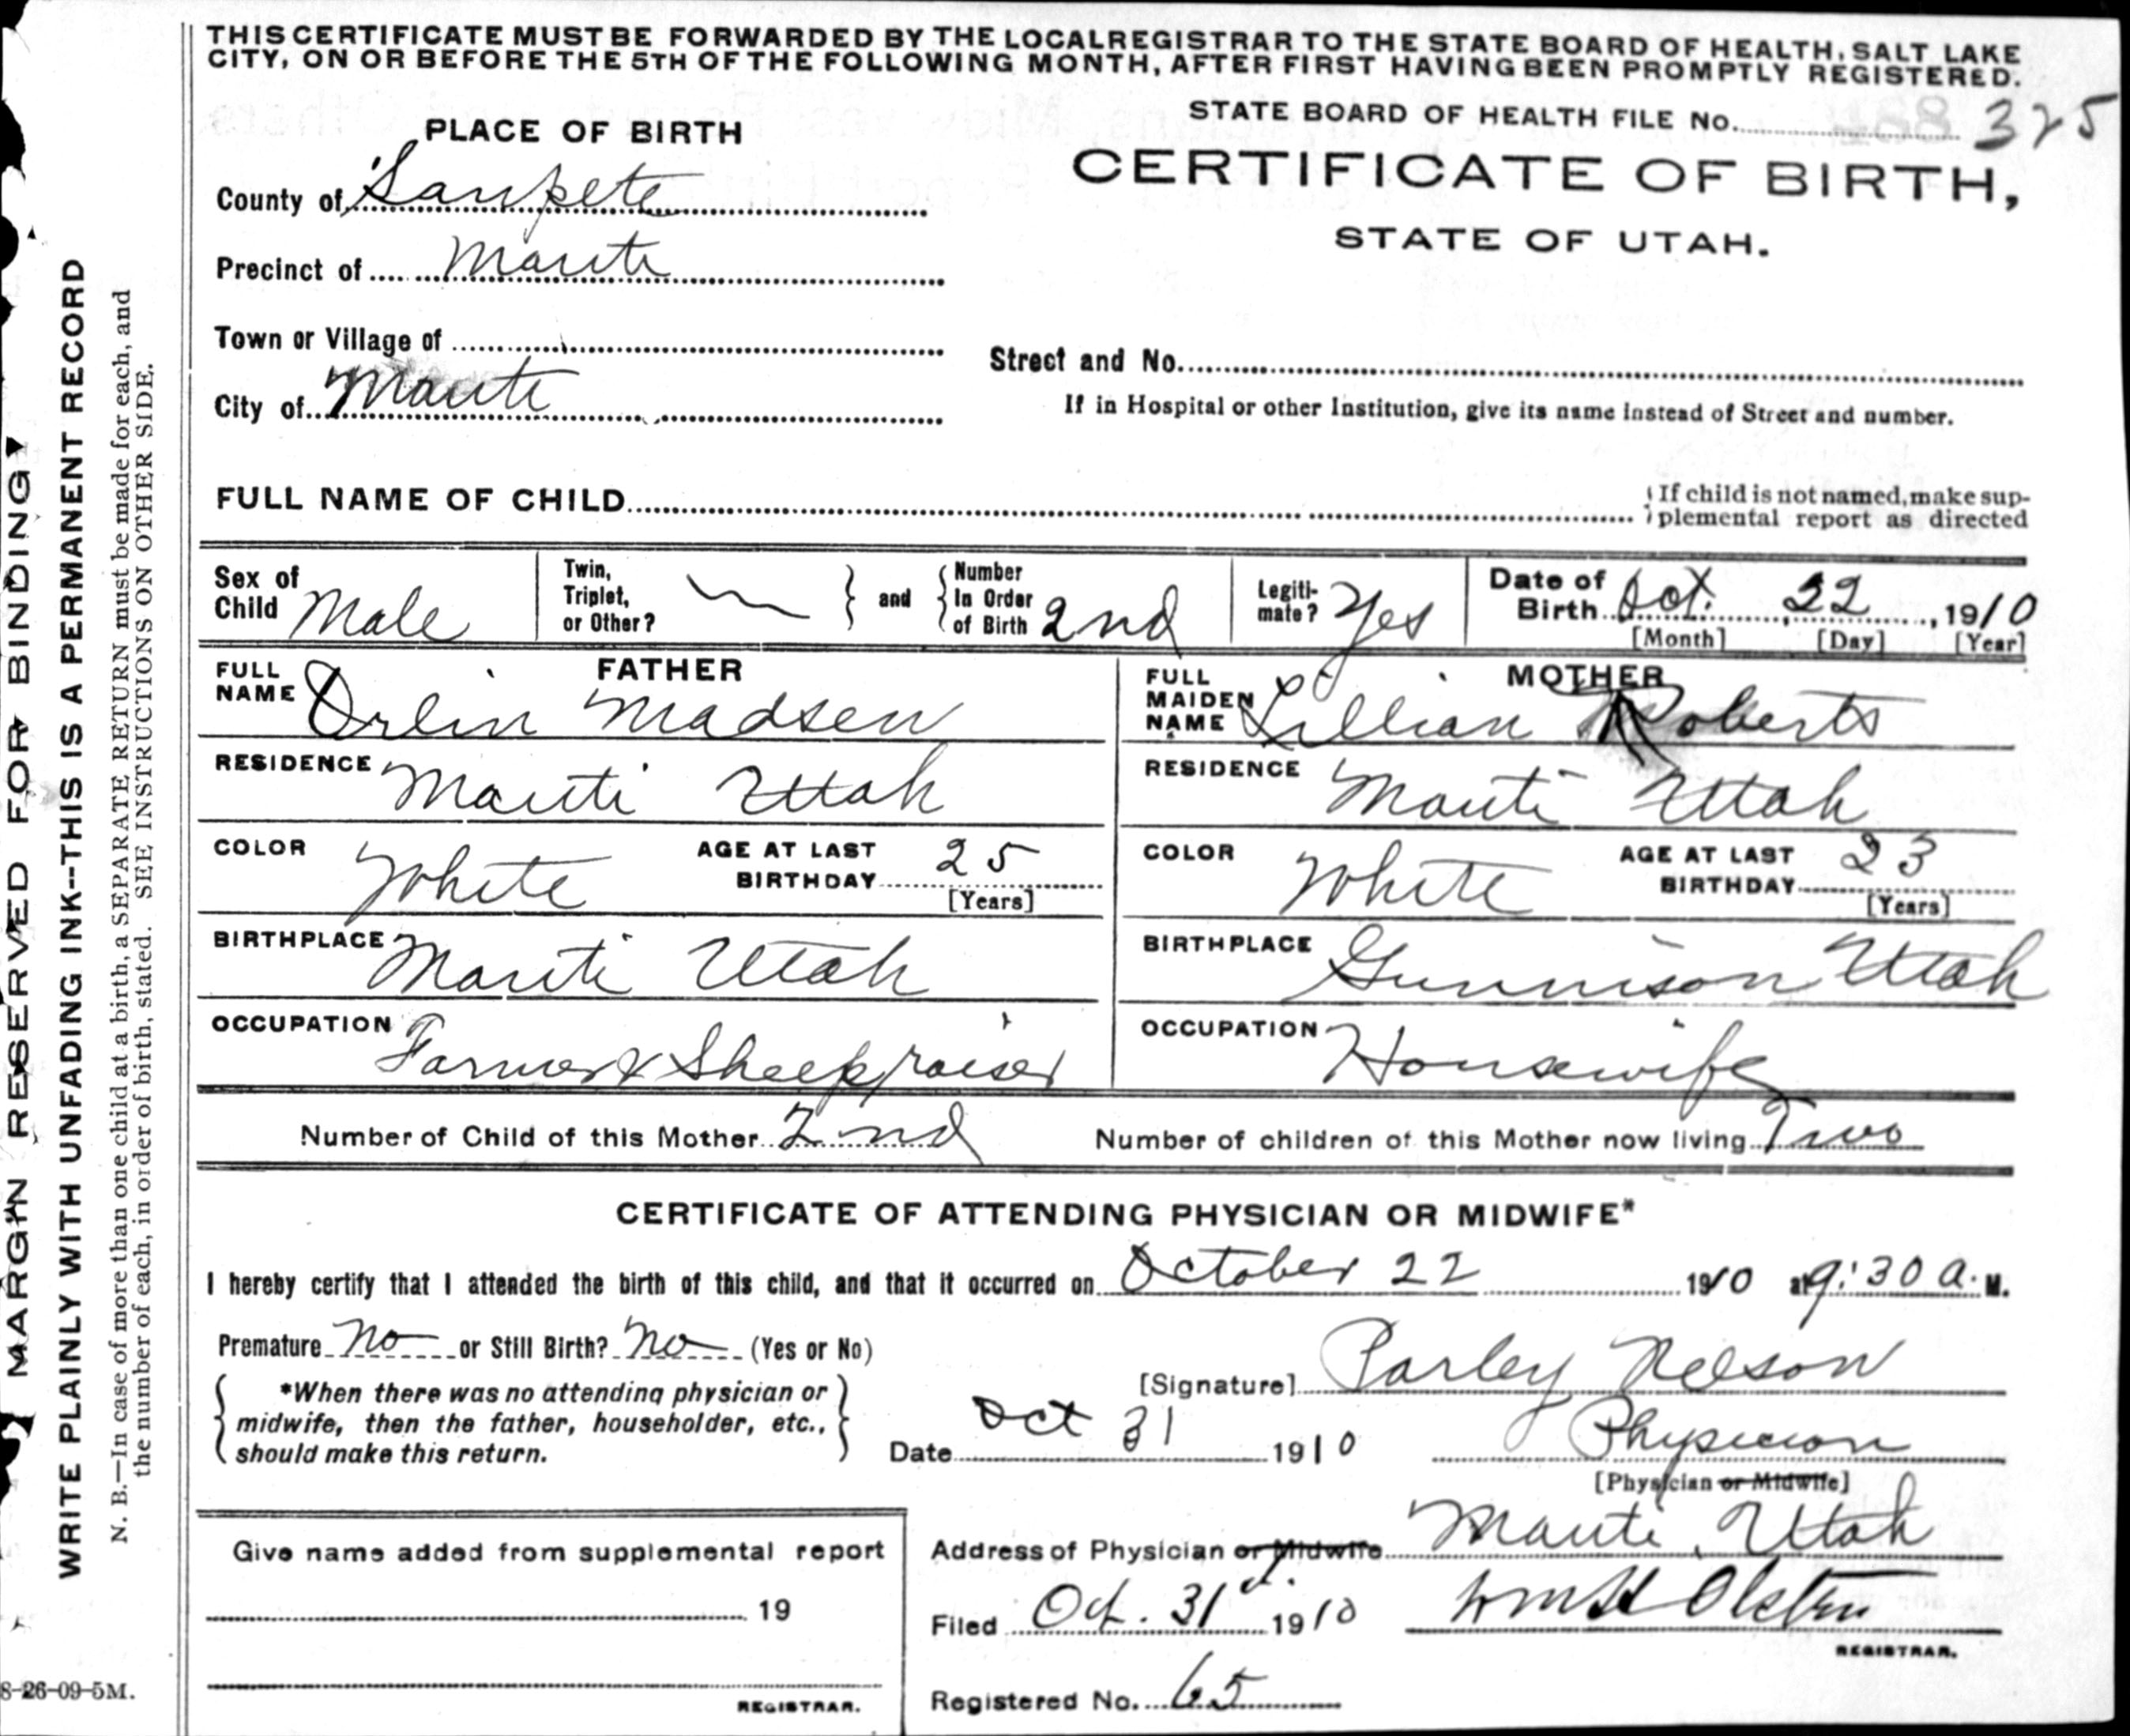 THIS CERTIFICATE MUST BE FORWARDED BY THE LOCAL REGISTRAR TO THE STATE BOARD OF HEALTH, SALT LAKE
CITY, ON OR BEFORE THE 5TH OF THE FOLLOWING MONTH, AFTER FIRST HAVING BEEN PROMPTLY REGISTERED.
STATE BOARD OF HEALTH FILE No. 325
PLACE OF BIRTH
CERTIFICATE OF BIRTH,
STATE OF UTAH.
County of Sanpete
Precinct of Manti
Town or Village of
Street and No.
City of Manti
If in Hospital or other Institution, give its name instead of Street and number.
FULL NAME OF CHILD
If child is not named, make sup-
plemental report as directed
Sex of Child Male
Twin, Triplet, or Other?
and
Number In Order of Birth 2nd
Legiti-mate? Yes
Date of Birth Oct. 22, 1910
[Month] [Day] [Year]
FATHER
FULL NAME Orlin Madsen
RESIDENCE Manti Utah
COLOR White AGE AT LAST BIRTHDAY 25
[Years]
BIRTHPLACE Manti Utah
OCCUPATION Farmer & Sheep raiser
MOTHER
FULL MAIDEN NAME Lillian Roberts
RESIDENCE Manti Utah
COLOR White AGE AT LAST BIRTHDAY 23
[Years]
BIRTHPLACE Gunnison Utah
OCCUPATION Housewife
Number of Child of this Mother 2nd Number of children of this Mother now living Two
CERTIFICATE OF ATTENDING PHYSICIAN OR MIDWIFE*
I hereby certify that I attended the birth of this child, and that it occurred on October 22 1910 at 9:30 a. M.
Premature no or Still Birth? no (Yes or No)
[Signature] Parley Nelson
*When there was no attending physician or
midwife, then the father, householder, etc.,
should make this return.
Date Oct 31 1910
Physician
[Physician or Midwife]
Address of Physician or Midwife Manti, Utah
Give name added from supplemental report
19
REGISTRAR.
Filed Oct. 31st 1910 Wm H Olsten
REGISTRAR.
Registered No. 65
MARGIN RESERVED FOR BINDING
WRITE PLAINLY WITH UNFADING INK--THIS IS A PERMANENT RECORD
N. B.—In case of more than one child at a birth, a SEPARATE RETURN must be made for each, and
the number of each, in order of birth, stated. SEE INSTRUCTIONS ON OTHER SIDE.
8-26-09-5M.